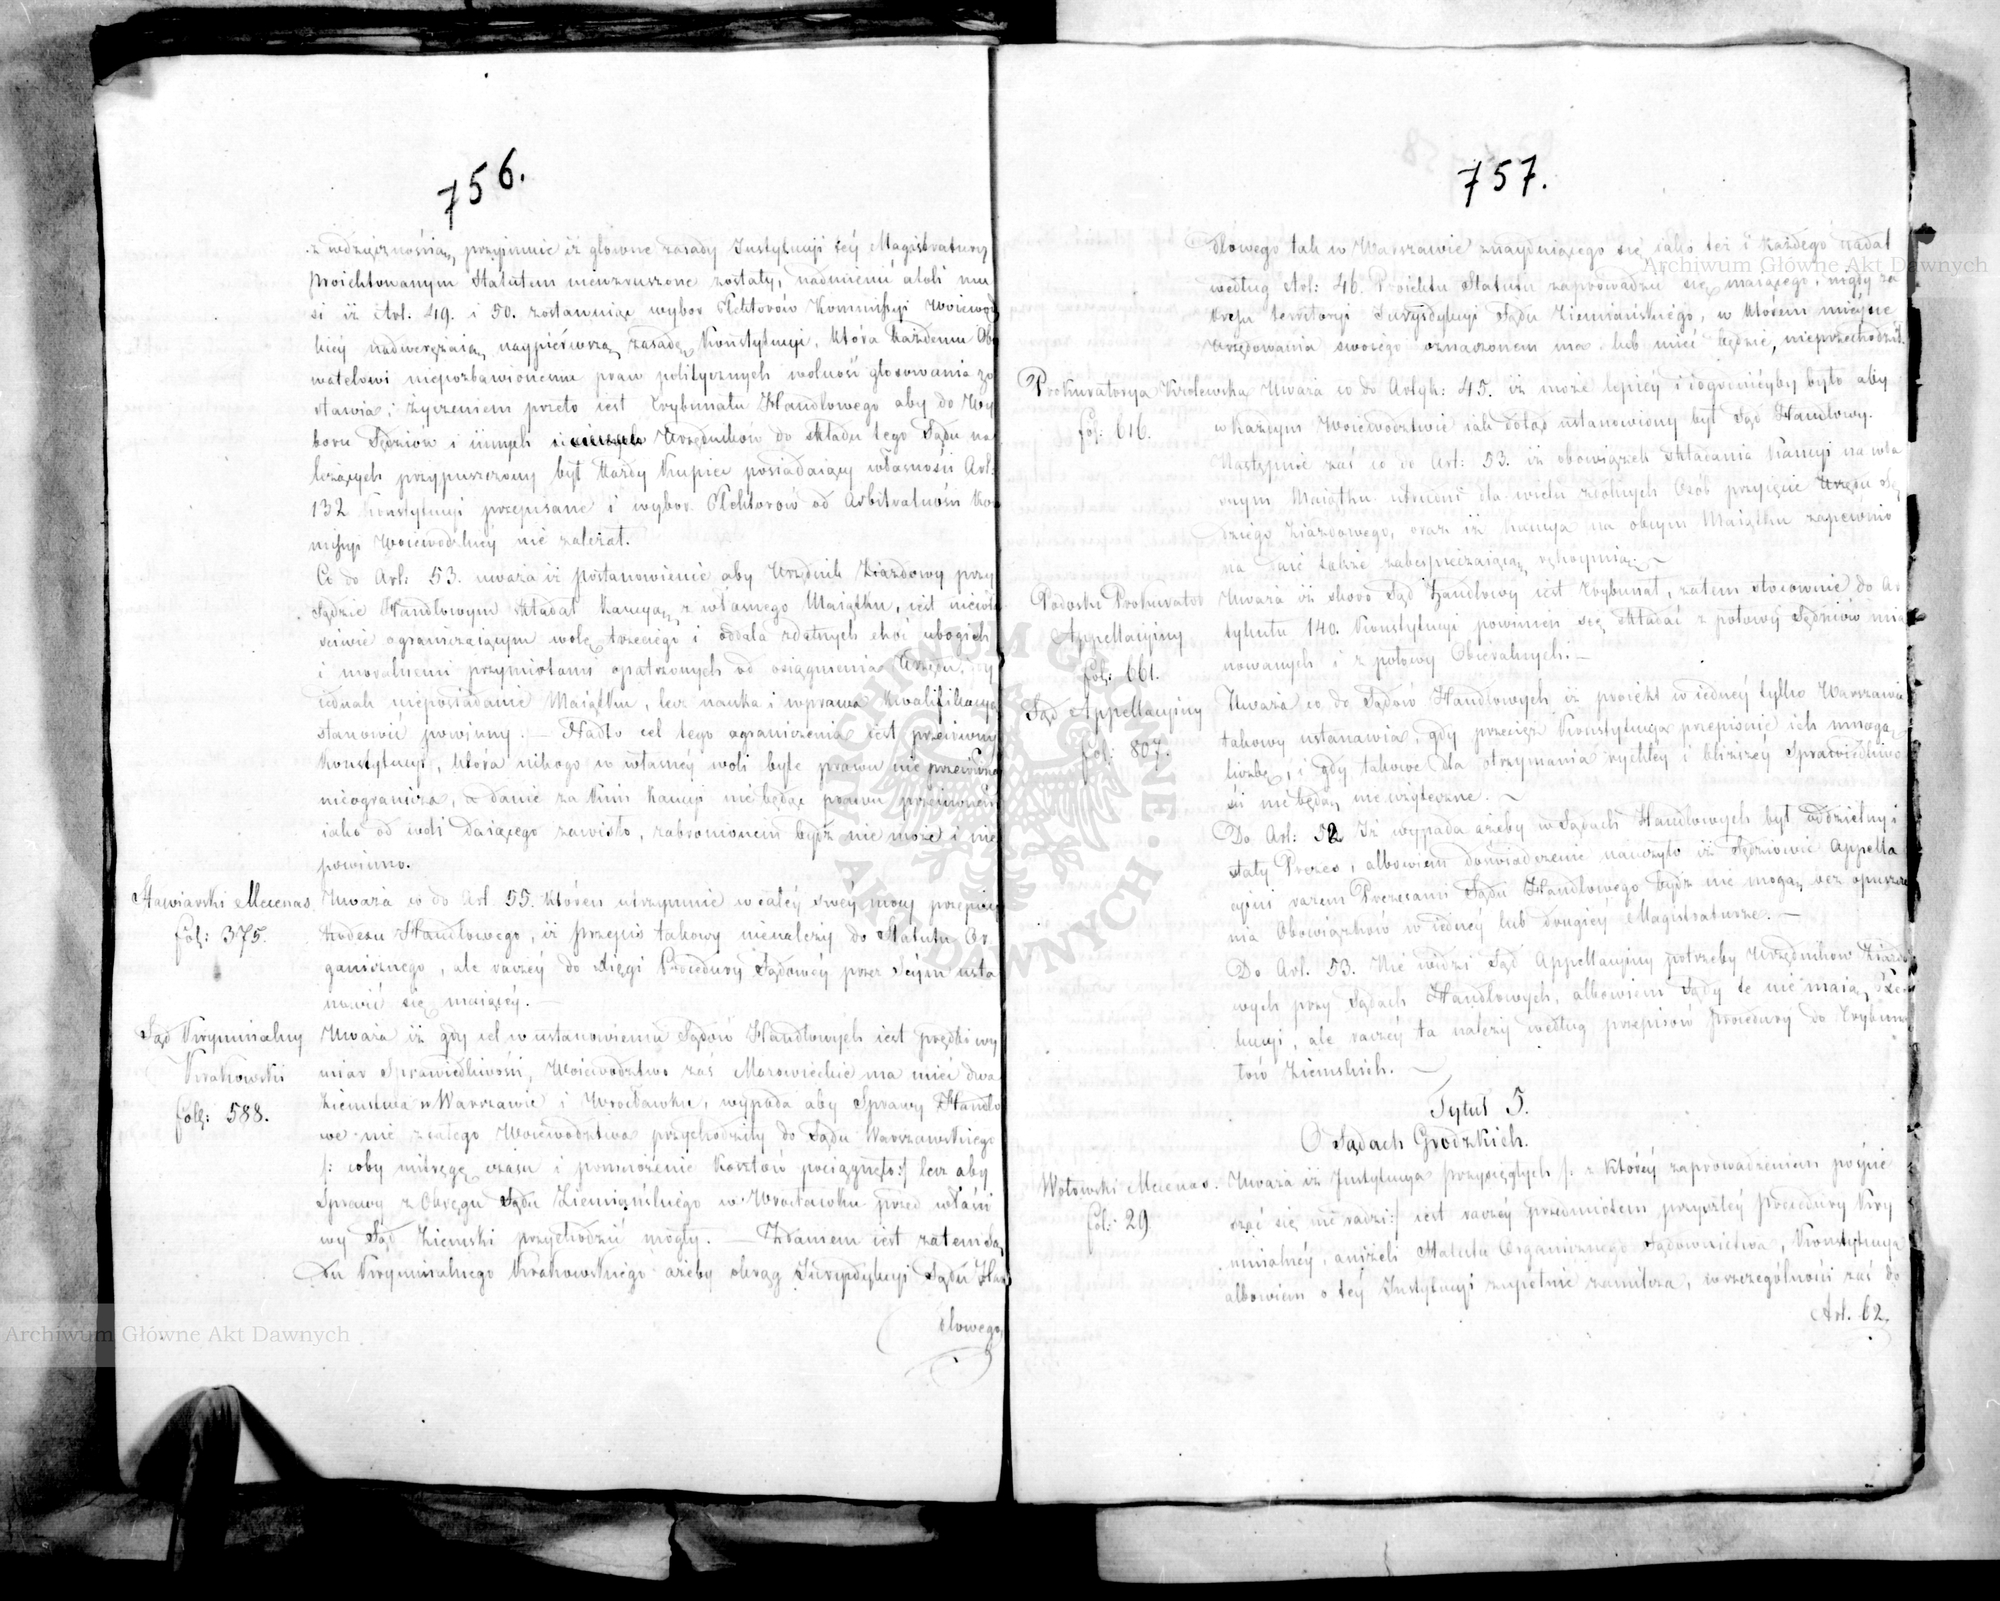 756.
z wdzięcznością przyjmuie iż główne zasady Instytucyi tey Magistratury
Proiektowanym Statutem niewzruszone zostały, nadmienić atoli mu
si iż Art. 49. i 50. zostawuiąc wybor Elektorów Kommissyi Woiewódz
kiey nadweręzaią naypierwszą zasadę Konstytucyi, która każdemu Oby
watelowi niepozbawionemu praw politycznych wolność głosowania zo
stawia; życzeniem przeto iest Trybunału Handlowego aby do Wy
boru Sędziów i innych Urzędników do składu tego Sądu na
leżących przypuszczony był każdy Kupiec posiadaiący własności Art:
132 Konstytucyi przepisane i wybor Elektorów od Arbitralności Kom
missyi Woiewodzkiey nie zależał.
Co do Art: 53. uważa iż postanowienie aby Urzędnik Ziazdowy przy
Sądzie Handlowym składał kaucyą z własnego Maiątku, iest
ograniczaiącym wolę trzeciego i oddala zdatnych choć ubogich
i moralnemi przymiotami opatrzonych od osiągnienia Urzędu,
iednak nieposiadanie Maiątku, lecz nauka i wprawa kwalifikacyą
stanowić powinny. — Nadto cel tego ograniczenia iest przeciwny
Konstytucyi, która nikogo w własney woli byle prawu nie przeciwney
nieogranicza, a danie za kim kaucyi nie będąc prawu przeciwnem
iako od woli daiącego zawisło, zabronionem bydź nie może i nie
powinno.
Stawiarski Mecenas
fol: 375.
Uważa co do Art. 55. którem utrzymuie w całey swey mocy przepisy
Kodexu Handlowego, iż przepis takowy nienależy do Statutu Or
ganicznego, ale raczey do Xięgi Procedury Sądowey przez Seym usta
nowić się maiącey. —
Sąd Kryminalny
Krakowski
fol: 588.
Uważa iż gdy cel w ustanowieniu Sądów Handlowych iest prędki wy
miar Sprawiedliwości, Woiewodztwo zaś Mazowieckie ma mieć dwa
Ziemstwa w Warszawie i Wrocławku, wypada aby Sprawy Handlo
we nie z całego Woiewodztwa przychodziły do Sądu Warszawskiego
/: coby mitręgę czasu i pomnożenie kosztów pociągnęło:/ lecz aby
Sprawy z Okręgu Sądu Ziemiańskiego w Wrocławku przed właści
wy Sąd Ziemski przychodzić mogły. — Zdaniem iest zatem Są
du Kryminalnego Krakowskiego ażeby okrąg Jurysdykcyi Sądu Han
dlowego
757.
dlowego tak w Warszawie znayduiącego się iako też i każdego nadal
według Art: 46. Proiektu Statutu zaprowadzić się maiącego, nigdy za
kresu territoryi Jurysdykcyi Sądu Ziemiańskiego, w którem mieysce
Urzędowania swoiego oznaczonem ma lub mieć będzie, nieprzechodził.
Prokuratorya Krolewska
fol: 616.
Uważa co do Artyk: 45. iż może lepiey i dogodnieyby było aby
w każdym Woiewodztwie iak dotąd ustanowiony był Sąd Handlowy.
Następnie zaś co do Art: 53. iż obowiązek składania Kaucyi na wła
snym Maiątku utrudni dla wielu zdolnych Osób przyięcie Urzędu Sę
dziego Ziazdowego, oraz iż kaucya na obcym Maiątku zapewnio
na być także zabezpieczaiącą rękoymią. ~
Podoski Prokurator
Appellacyiny
fol: 661.
Uważa iż skoro Sąd Handlowy iest Trybunał, zatem stosownie do Ar
tykułu 140. Konstytucyi powinien się składać z połowy Sędziów mia
nowanych i z połowy Obieralnych. —
Sąd Appellacyiny
fol: 807.
Uważa co do Sądów Handlowych iż proiekt w iedney tylko Warszawie
takowy ustanawia, gdy przecież Konstytucya przepisuie ich mnogą
liczbę, i gdy takowe dla otrzymania rychłey i bliższey Sprawiedliwo
ści nie będą nieużyteczne. ~
Do Art: 52 Iż wypada ażeby w Sądach Handlowych był oddzielny i
stały Prezes, albowiem doświadczenie nauczyło iż Sędziowie Appella
cyini razem Prezesami Sądu Handlowego bydź nie mogą bez opuszcze
nia Obowiązków w iedney lub drugiey Magistraturze. —
Do Art. 53. Nie widzi Sąd Appellacyiny potrzeby Urzędników Ziazdo
wych przy Sądach Handlowych, albowiem Sądy te nie maią Exe
kucyi, ale raczey ta należy według przepisów Procedury do Trybuna
łów Ziemskich. ~
Tytuł 5.
O Sądach Grodzkich.
Wołowski Mecenas
fol: 29.
Uważa iż Instytucya przysięgłych /: z którey zaprowadzeniem pośpie
szać się nie radzi:/ iest raczey przedmiotem przyszłey Procedury Kry
minalney, aniżeli Statutu Organicznego Sądownictwa, Konstytucya
albowiem o tey Instytucyi zupełnie zamilcza, w szczególności zaś do
Art. 62.
Archiwum Główne Akt Dawnych
Archiwum Główne Akt Dawnych
ARCHIWUM GŁÓWNE AKT DAWNYCH